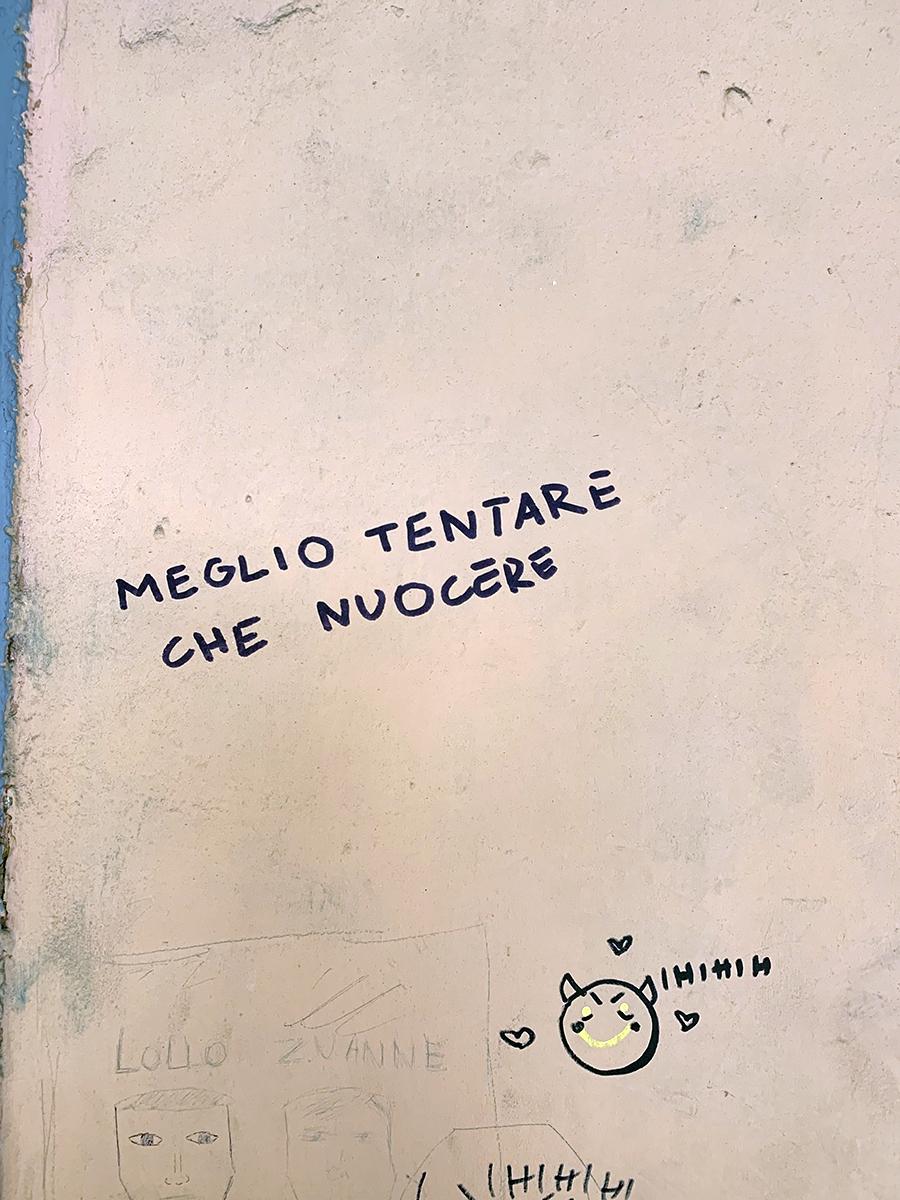 MEGLIO TENTARE
CHE NUOCERE
IHIHIH
LOLLO ZVANNE
IHIHIHI